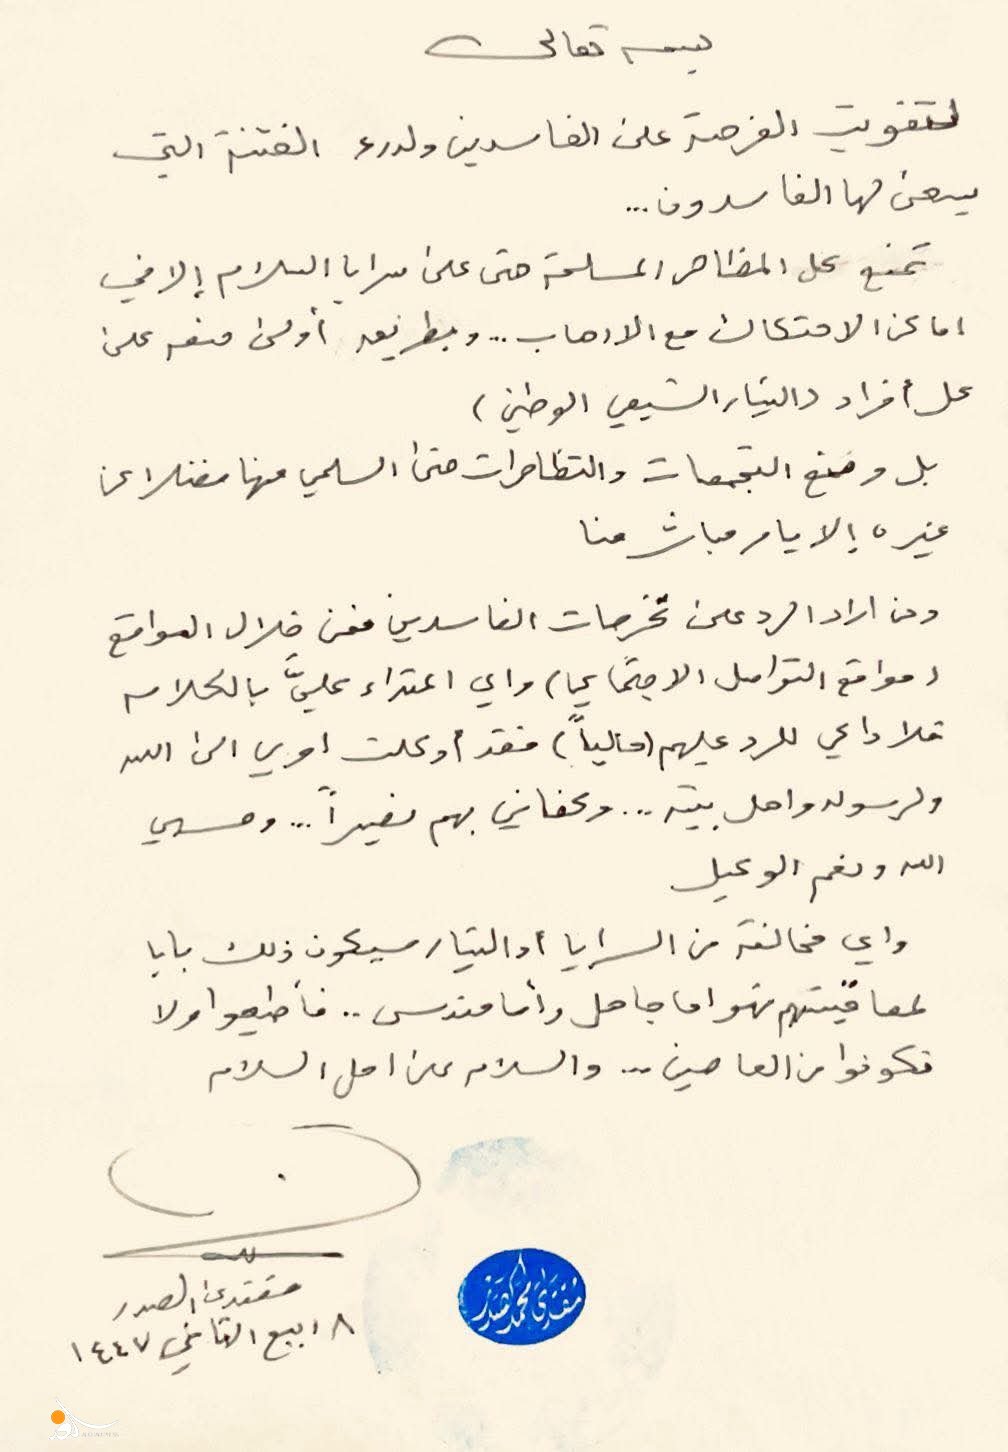 بسمه تعالى
لتفويت الفرصة على الفاسدين ولدرء الفتنة التي
يسعى لها الفاسدون...
تمنع كل المظاهر المسلحة حتى على سرايا السلام إلا في
اماكن الاحتكاك مع الارهاب ... وبطريق أولى منعه على
كل أفراد (التيار الشيعي الوطني)
بل ومنع التجمعات والتظاهرات حتى السلمي منها فضلا عن
غيره إلا بامر مباشر منا
ومن اراد الرد على تخرصات الفاسدين فمن خلال المواقع
(مواقع التواصل الاجتماعي) واي اعتداء عليَّ بالكلام
فلا داعي للرد عليهم (حالياً) فقد أوكلت امري الى الله
ولرسوله واهل بيته ... وكفاني بهم نصيراً ... وحسبي
الله ونعم الوكيل
واي مخالفة من السرايا أو التيار سيكون ذلك بابا
لمعاقبتهم فهو اما جاهل وأما مندس .. فأطيعوا ولا
تكونوا من العاصين ... والسلام على اهل السلام
مقتدى الصدر
٨ ربيع الثاني ١٤٤٧
مقتدى محمد الصدر